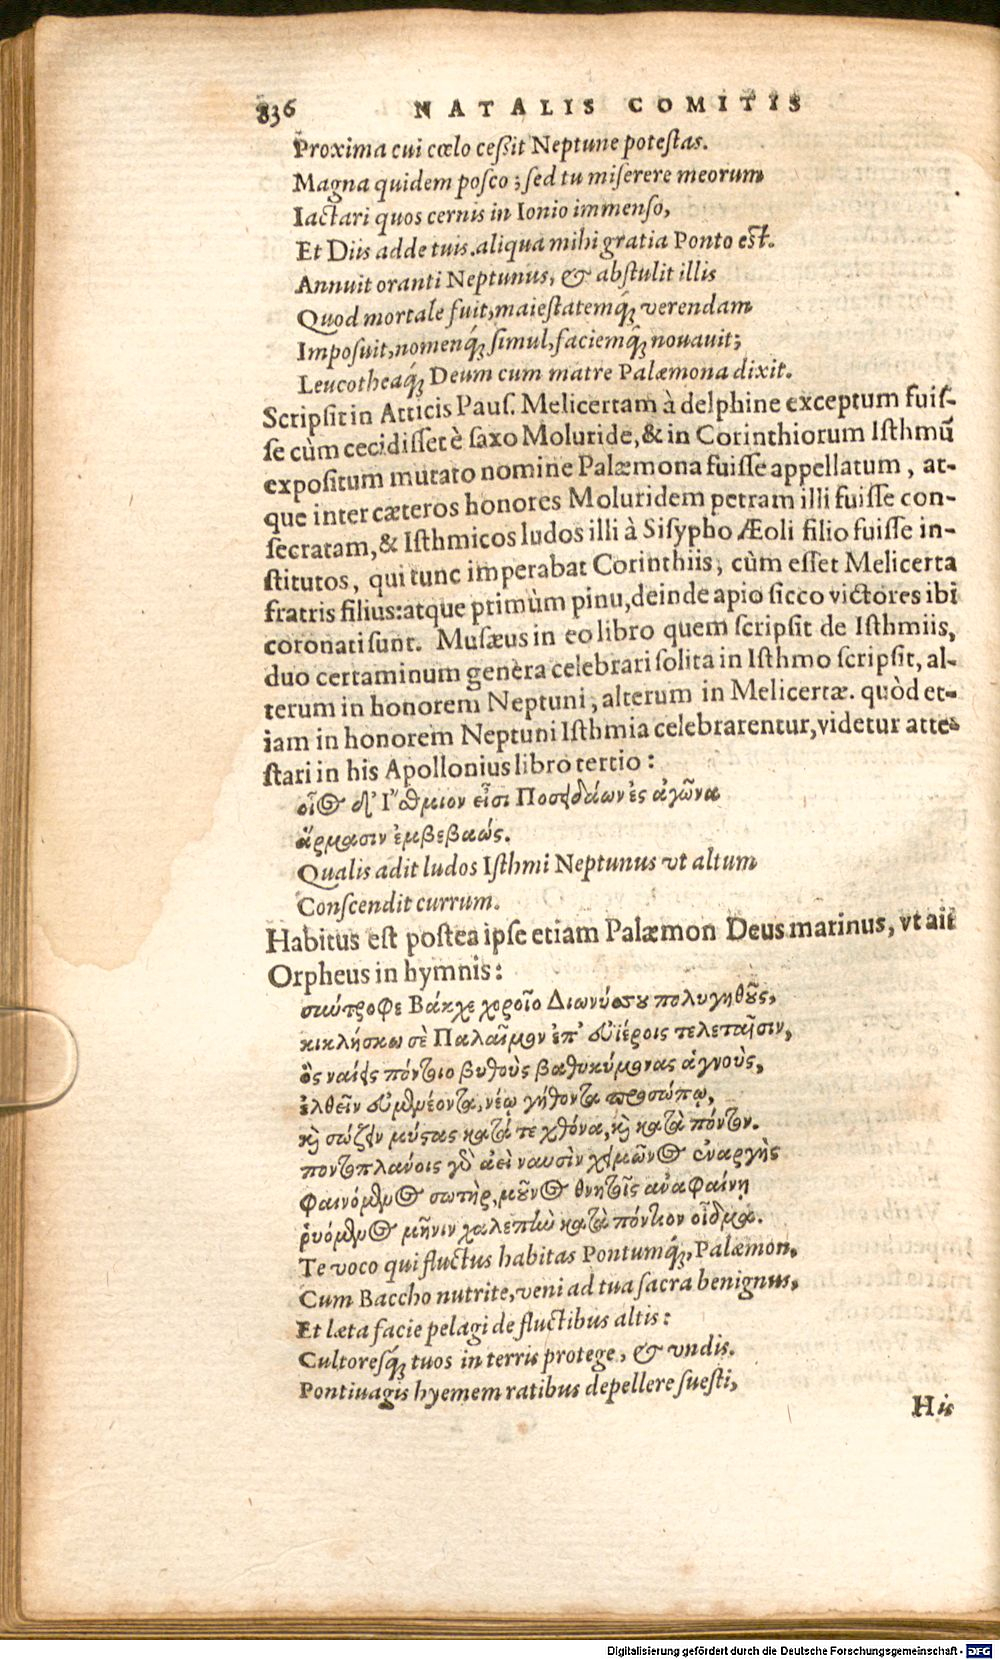 836 NATALIS COMITIS
Proxima cui cœlo ceßit Neptune potestas.
Magna quidem posco; sed tu miserere meorum
Iactari quos cernis in Ionio immenso,
Et Diis adde tuis. aliqua mihi gratia Ponto est.
Annuit oranti Neptunus, & abstulit illis
Quod mortale fuit, maiestatemq́; verendam
Imposuit, nomenq́; simul, faciemq́; nouauit;
Leucotheaq́; Deum cum matre Palæmona dixit.
Scripsit in Atticis Paus. Melicertam à delphine exceptum fuis-
se cùm cecidisset è saxo Moluride, & in Corinthiorum Isthmū
expositum mutato nomine Palæmona fuisse appellatum, at-
que inter cæteros honores Moluridem petram illi fuisse con-
secratam, & Isthmicos ludos illi à Sisypho Æoli filio fuisse in-
stitutos, qui tunc imperabat Corinthiis, cùm esset Melicerta
fratris filius: atque primùm pinu, deinde apio sicco victores ibi
coronati sunt. Musæus in eo libro quem scripsit de Isthmiis,
duo certaminum genera celebrari solita in Isthmo scripsit, al-
terum in honorem Neptuni, alterum in Melicertæ. quòd et-
iam in honorem Neptuni Isthmia celebrarentur, videtur atte-
stari in his Apollonius libro tertio:
οἷος δ' Ἴσθμιον εἶσι Ποσειδάων ἐς ἀγῶνα
ἅρμασιν ἐμβεβαώς.
Qualis adit ludos Isthmi Neptunus vt altum
Conscendit currum.
Habitus est postea ipse etiam Palæmon Deus marinus, vt ait
Orpheus in hymnis:
σύντροφε Βάκχε χοροῖο Διωνύσου πολυγηθοῦς,
κικλήσκω σὲ Παλαῖμον ἐπ' εὐϊέροις τελεταῖσιν,
ὃς ναίεις πόντοιο βυθοὺς βαθυκύμονας ἁγνοὺς,
ἐλθεῖν εὐμενέοντα, νέῳ γήθοντα προσώπῳ,
καὶ σώζειν μύστας κατά τε χθόνα, καὶ κατὰ πόντον.
ποντοπλάνοις γὸ ἀεὶ ναυσὶν χειμῶνος ἐναργὴς
φαινόμενος σωτὴρ, μοῦνος θνητοῖς ἀναφαίνῃ
ῥυόμενος μῆνιν χαλεπὴν κατὰ πόντιον οἶδμα.
Te voco qui fluctus habitas Pontumq́;, Palæmon,
Cum Baccho nutrite, veni ad tua sacra benignus,
Et læta facie pelagi de fluctibus altis:
Cultoresq́; tuos in terris protege, & vndis.
Pontiuagis hyemem ratibus depellere suesti,
His
Digitalisierung gefördert durch die Deutsche Forschungsgemeinschaft - DFG